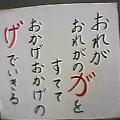 おれが
おれがのがを
すてて
おかげおかげの
げでいきる